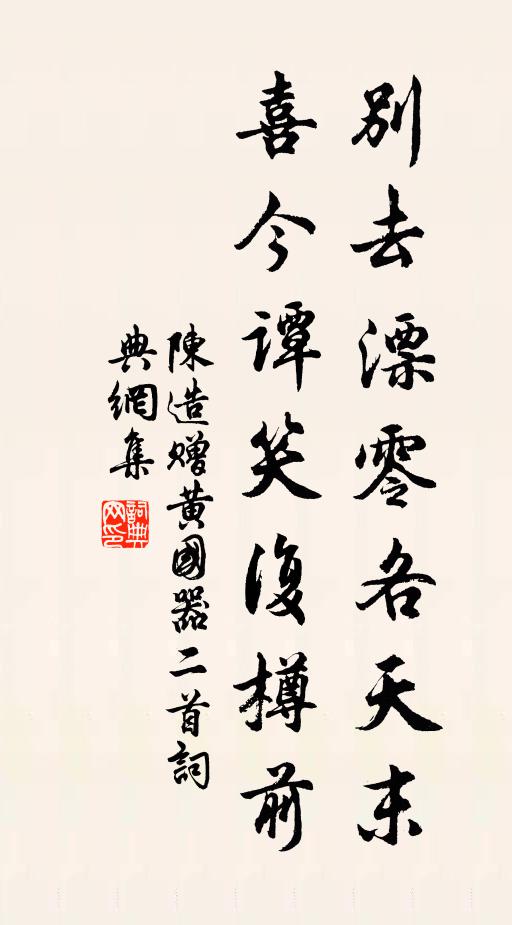 別去漂零各天末
喜今譚笑復樽前
陳造贈黃國器二首詞
典網集
詞典
网印